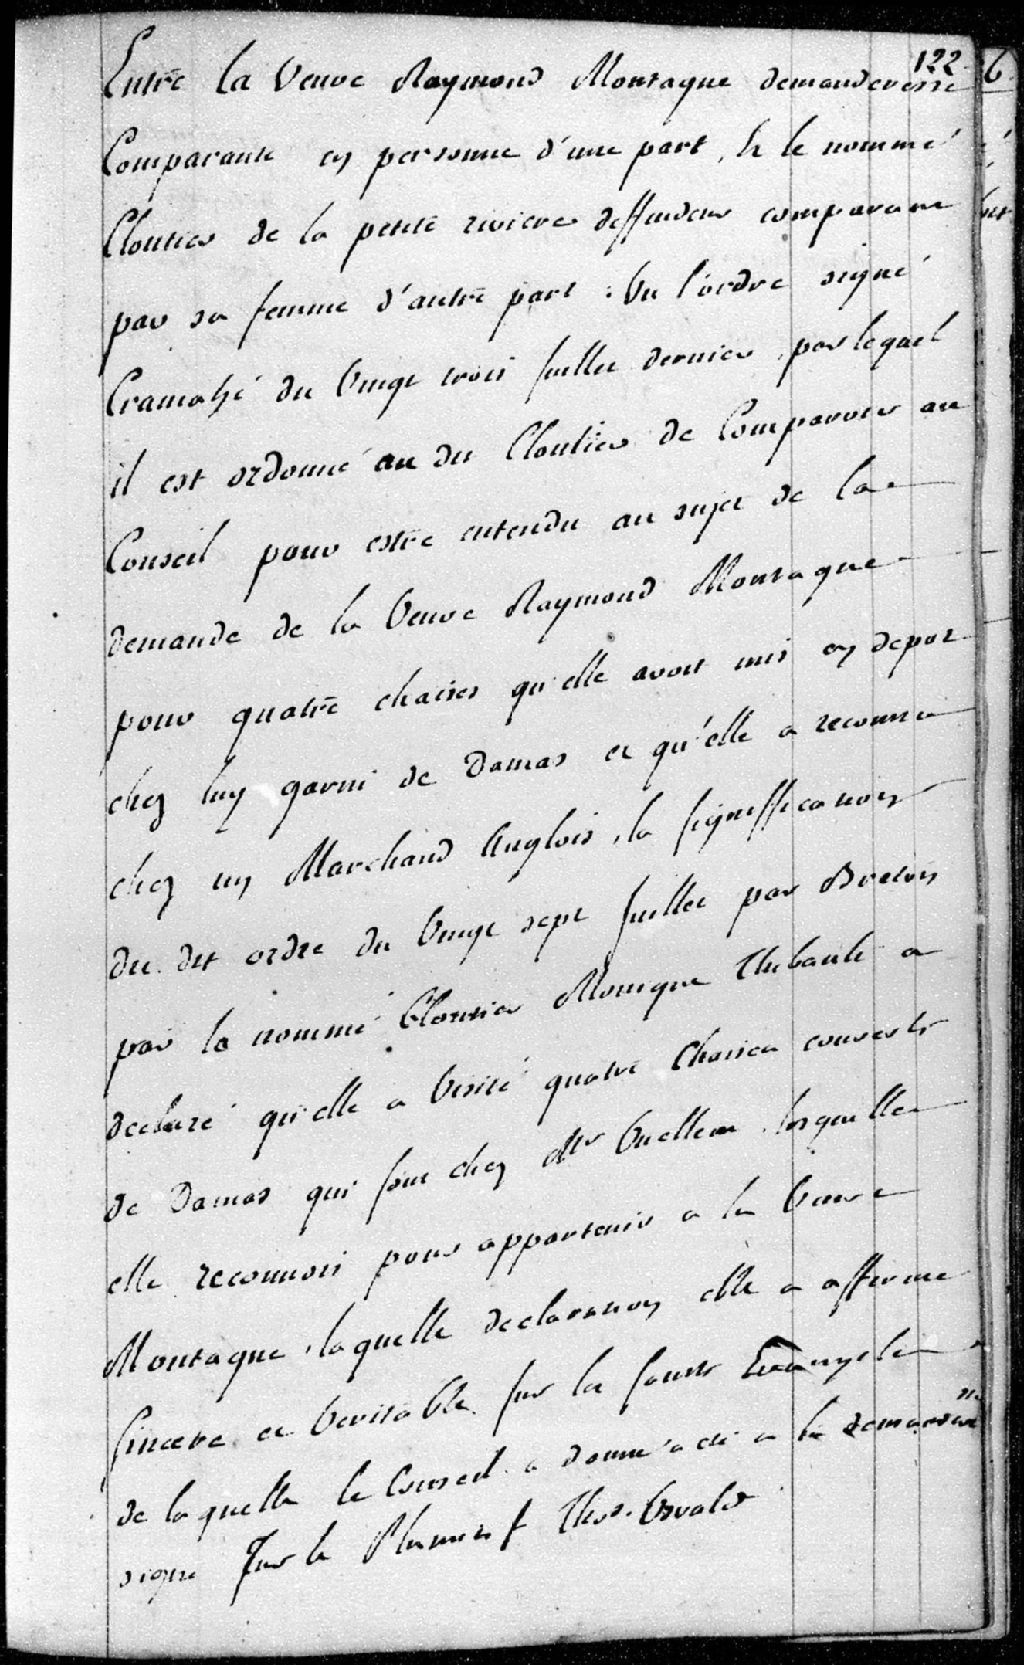 122
6
Entre la Veuve Raymond Montague demanderesse
Comparante en personne d'une part, & le nommé
Cloutier de la petite riviere deffendeur comparant
par sa femme d'autre part : Vu l'ordre signé
Cramahé du Vingt trois juillet dernier, par lequel
il est ordonné au du Cloutier de Comparoir au
Conseil pour estre entendu au sujet de la
demande de la Veuve Raymond Montague
pour quatre chaises qu'elle avoit mis en depot
chez luy garni de Damas et qu'elle a reconnu
chez un Marchand Anglois, la signiffication
du dit ordre du Vingt sept juillet par Breton
par la nommé Cloutier Monique Thibault a
declaré qu'elle a Visité quatre Chaises couverts
de Damas qui sont chez Mr lesquelles
elle reconnois pour appartenir a la Veuve
Montague, laquelle declaration elle a affirmé
sincere et Veritable sur la sainte Evangile
de laquelle le Conseil a donné acte a la
signé sur le Plumitif Thos.